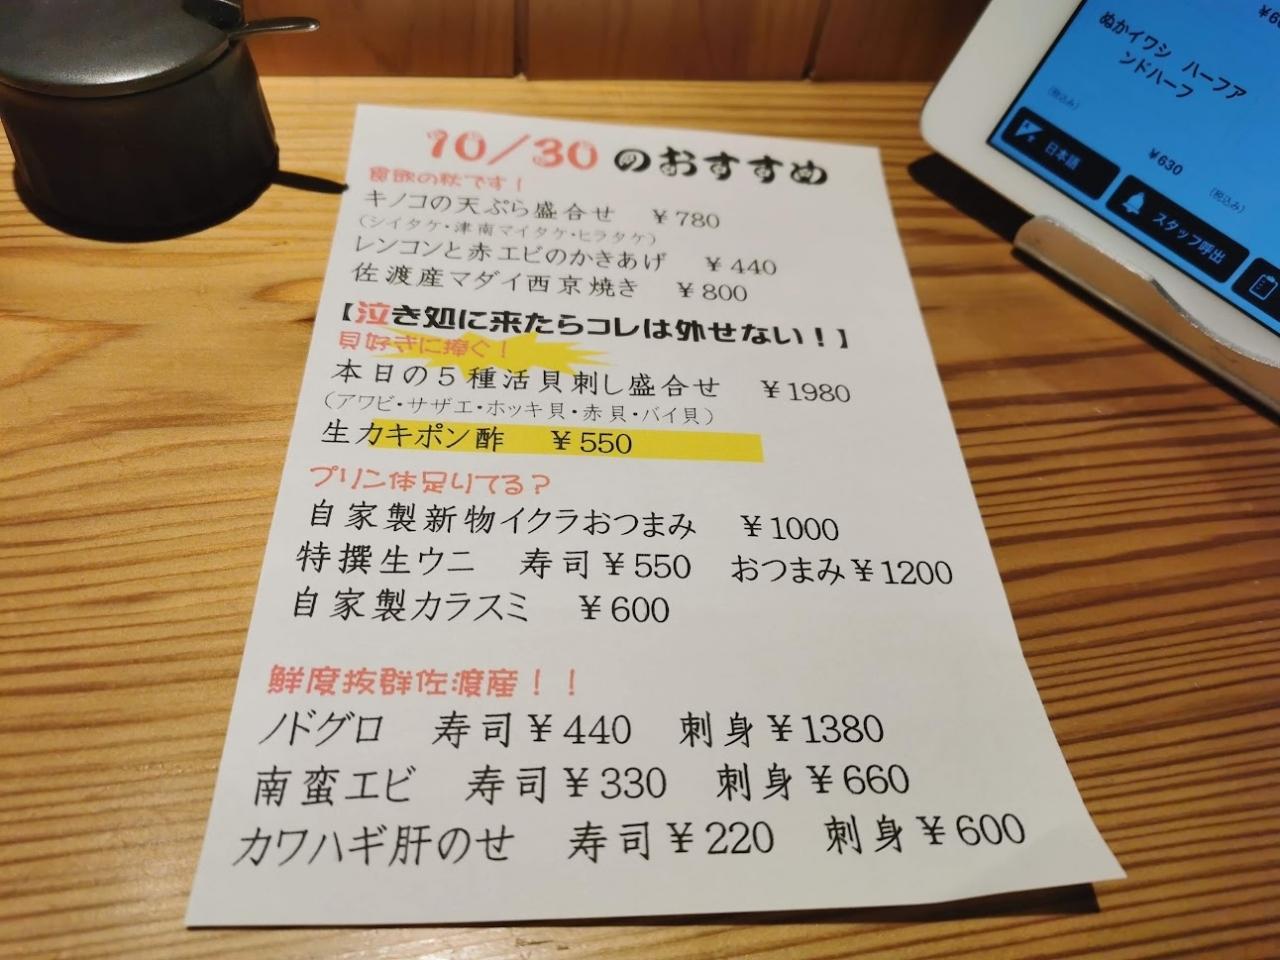 10/30 のおすすめ
食欲の秋です！
キノコの天ぷら盛合せ ￥780
（シイタケ・津南マイタケ・ヒラタケ）
レンコンと赤エビのかきあげ ￥440
佐渡産マダイ西京焼き ￥800
【泣き処に来たらコレは外せない！】
貝好きに捧ぐ！
本日の5種活貝刺し盛合せ ￥1980
（アワビ・サザエ・ホッキ貝・赤貝・バイ貝）
生カキポン酢 ￥550
プリン体足りてる？
自家製新物イクラおつまみ ￥1000
特撰生ウニ 寿司￥550 おつまみ￥1200
自家製カラスミ ￥600
鮮度抜群佐渡産！！
ノドグロ 寿司￥440 刺身￥1380
南蛮エビ 寿司￥330 刺身￥660
カワハギ肝のせ 寿司￥220 刺身￥600
ぬかイワシ ハーフア
ンドハーフ
(税込み)
¥630
(税込み)
日本語
スタッフ呼出